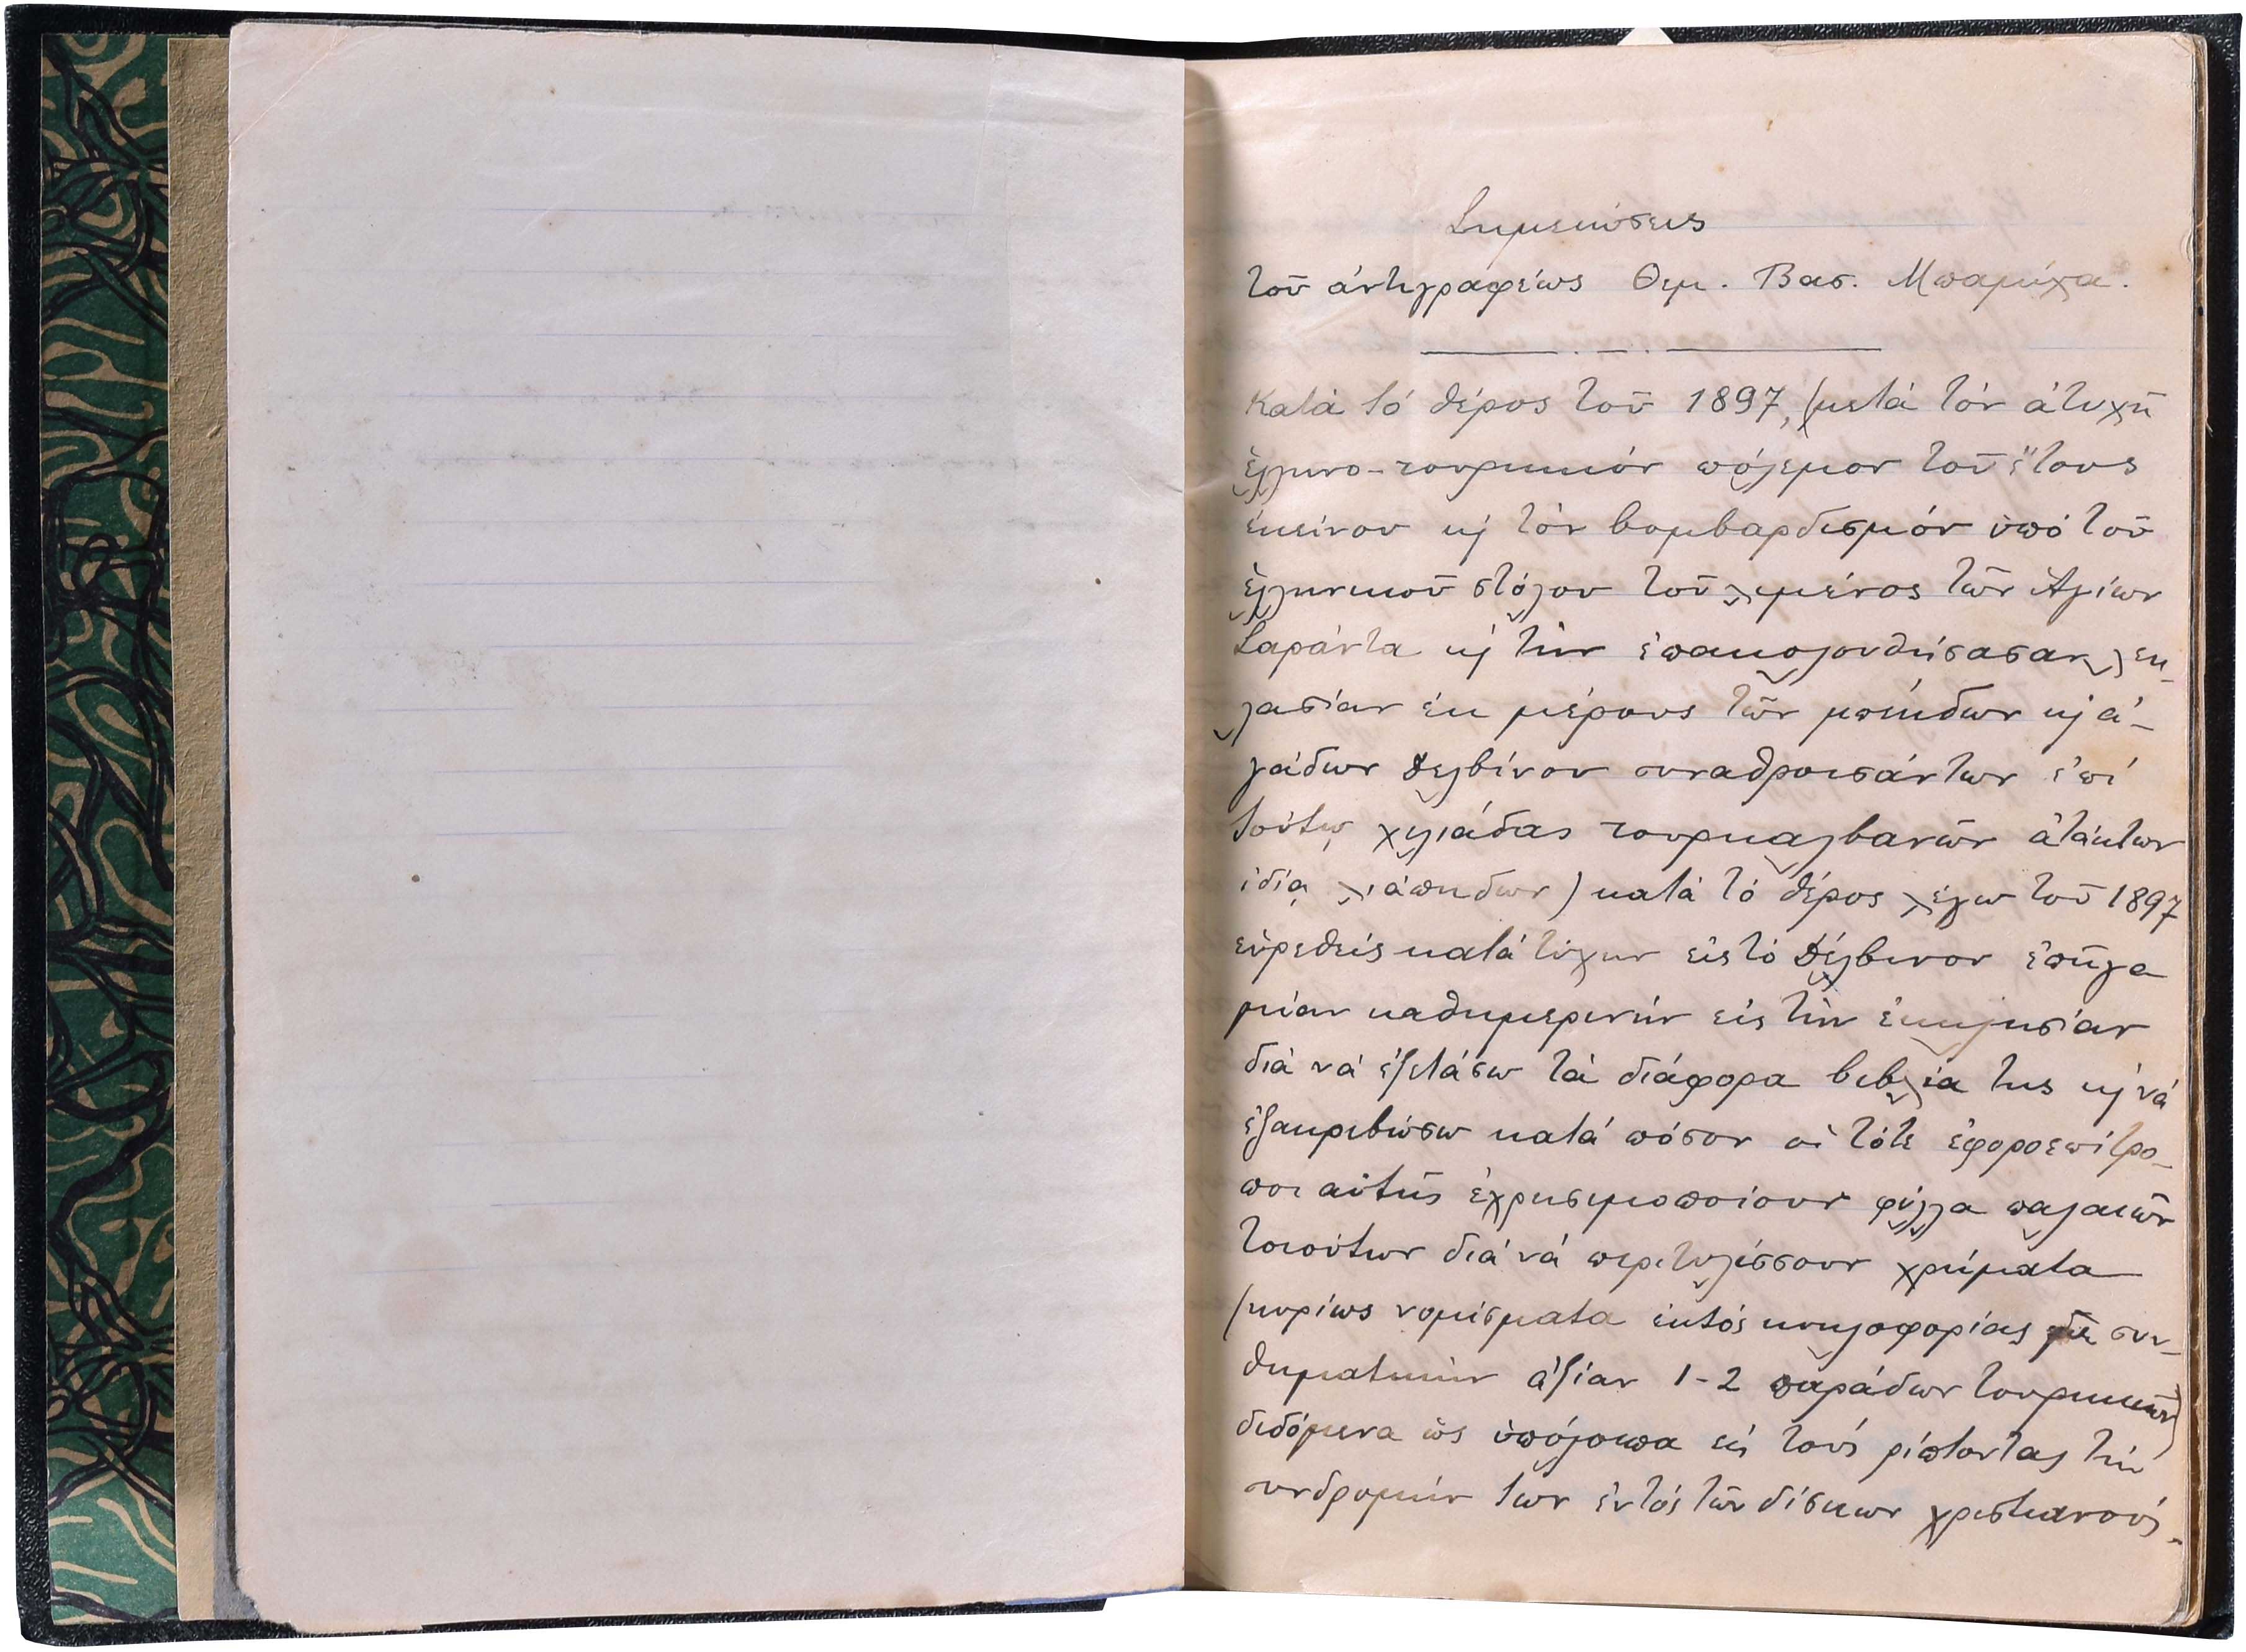 Σημειώσεις
τοῦ ἀντιγραφέως Θεμ. Βασ. Μπαμίχα.
Κατὰ τό θέρος τοῦ 1897, (μετά τόν ἀτυχῆ
ἑλληνο-τουρκικόν πόλεμον τοῦ ἔτους
ἐκείνου κ̀ τόν βομβαρδισμόν ὑπό τοῦ
ἑλληνικοῦ στόλου τοῦ λιμένος τῶν Ἁγίων
Σαράντα κ̀ τὴν ἐπακολουθήσασαν λεη-
λασίαν ἐκ μέρους τῶν μπέηδων κ̀ ἀ-
γάδων Δελβίνου συναθροισάντων ἐπί
τούτῳ χιλιάδας τουρκαλβανῶν ἀτάκτων
ἰδίᾳ λιάπηδων) κατά τό θέρος λέγω τοῦ 1897
εὑρεθείς κατά τύχην εἰς τό Δέλβινον ἐπῆγα
μίαν καθημερινήν εἰς τὴν ἐκκλησίαν
διά νά ἐξετάσω τά διάφορα βιβλία της κ̀ νά
ἐξακριβώσω κατά πόσον οἱ τότε ἐφοροεπίτρο-
ποι αὐτῆς ἐχρησιμοποίουν φύλλα παλαιῶν
τοιούτων διά νά περιτυλίσσουν χρήματα
(κυρίως νομίσματα ἐκτός κυκλοφορίας με συν-
θηματικήν ἀξίαν 1-2 παράδων τουρκικῶν)
διδόμενα ὡς ὑπόλοιπα εἰς τούς ρίπτοντας τήν
συνδρομήν των ἐντός τῶν δίσκων χριστιανούς.